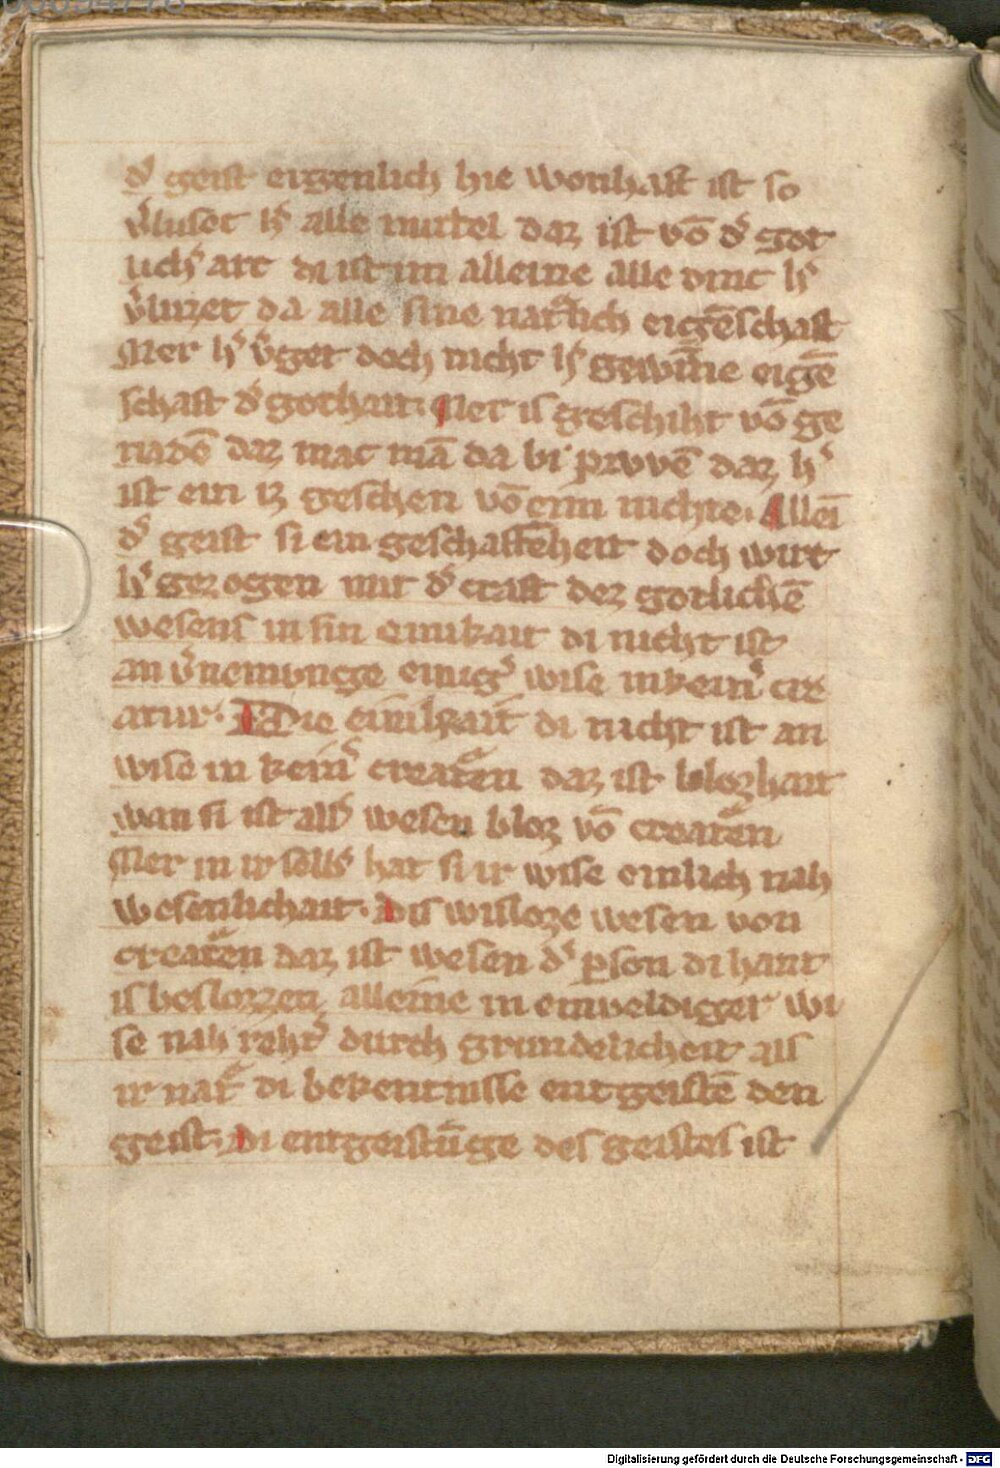 d᷎ geist eigenlich hie wonhaft ist so
v᷎luset h᷎ alle mittel daz ist vō d᷎ got
lich᷎ art di ist im alleine alle dinc h᷎
v᷎luzet da alle sine nat᷎lich eigēschaft
Mer h᷎ v᷎get doch nicht h᷎ gewīne eigē
schaft d᷎ gothait. Mer is geschiht vō ge
nadē daz mac mā da bi pruvē daz h᷎
ist ein iz geschen vō eim nichte. Allei
d᷎ geist si ein geschaffēheit doch wirt
h᷎ gezogen mit d᷎ craft dez gotlichē
wesens in sin einikait di nicht ist
an v᷎nemunge einig᷎ wise in kein᷎ cre
atur. Die einikait di nicht ist an
wise in kein᷎ creat᷎en daz ist blozhait
wan si ist all᷎ wesen bloz vō creat᷎en
Mer in ir selb᷎ hat si ir wise einlich nah
wesenlichait. Dis wisloze wesen von
creat᷎en daz ist wesen d᷎ p᷎son di hant
is beslozzen alleine in einveldigger wi
se nah reht᷎ durch grundelicheit als
ir nat᷎ di bekentnisse entgeistē den
geist. Di entgeistūge des geistes ist
Digitalisierung gefördert durch die Deutsche Forschungsgemeinschaft - DFG